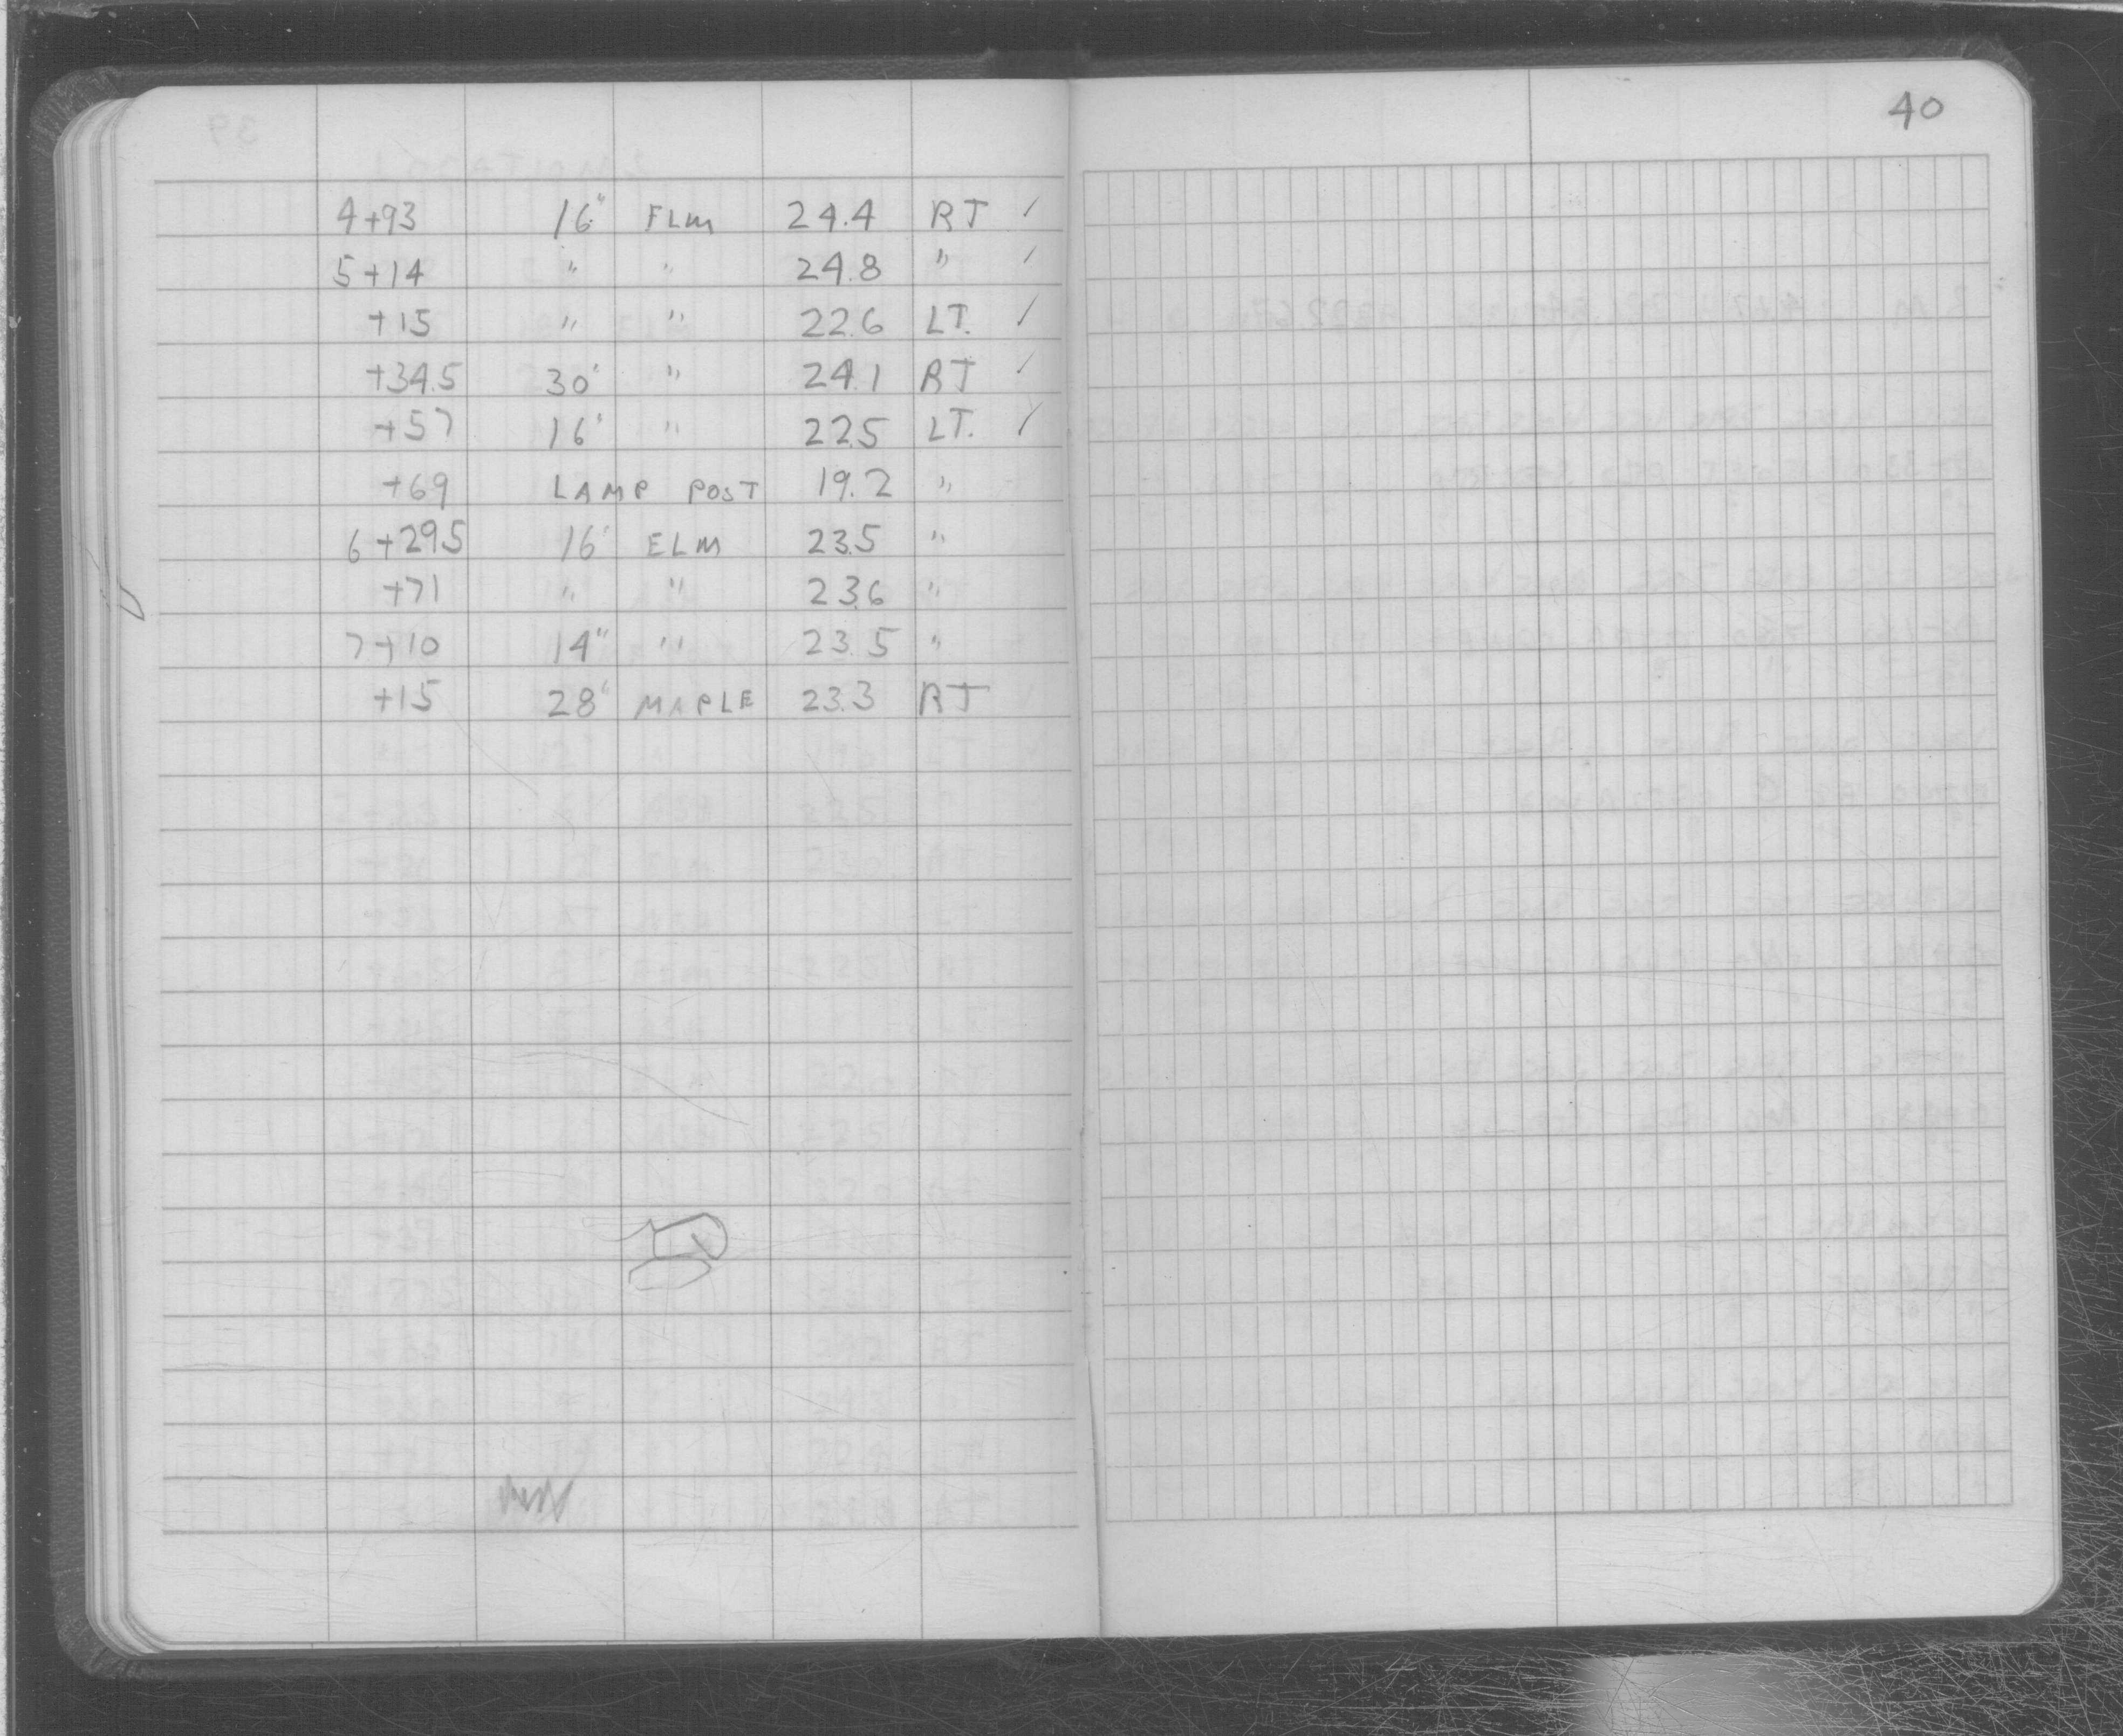 40
4+93 16" ELM 24.4 RT ✓
5+14 " " 24.8 " ✓
+15 " " 22.6 LT. ✓
+34.5 30" " 24.1 RT ✓
+57 16" " 22.5 LT. ✓
+69 LAMP POST 19.2 "
6+29.5 16" ELM 23.5 "
+71 " " 23.6 "
7+10 14" " 23.5 "
+15 28" MAPLE 23.3 RT